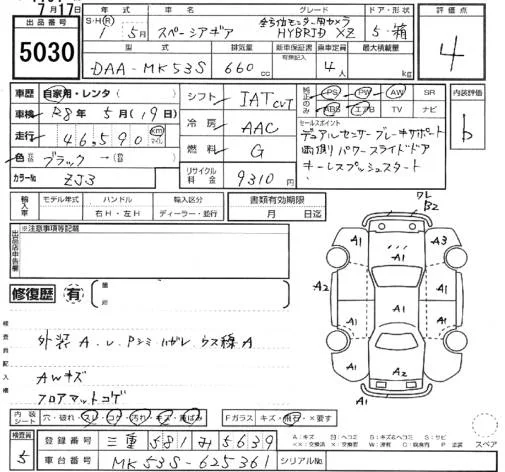 7月17日
出品番号 5030
年式 車名 グレード ドア・形状
S・H・R 1年 5月 スペーシアギア 全方位モニター用カメラ HYBRID XZ 5・箱
型式 排気量 新車保証書 乗車定員 最大積載量
有無記入
DAA-MK53S 660cc 4人 kg
評価点 4
内装評価 b
車歴 自家用・レンタ ( )
車検 R8年 5月 (19日)
走行 46,590 km マイル
色 元色 ブラック → (色)
カラーNo ZJ3
シフト IAT CVT
冷房 AAC
燃料 G
リサイクル料金 9310円
純正のみ PS PW AW SR
ABS エアB TV ナビ
セールスポイント
デュアルセンサーブレーキサポート
両側パワースライドドア
キーレスプッシュスタート
輸入車 モデル年式 ハンドル 輸入区分
年 右H・左H ディーラー・並行
書類有効期限
月 日迄
出品店申告欄 ※注意事項等記載
修復歴 有
箇所
検査員記入欄
外装 A.U.Pシミ ハガレ ウス線A
AWキズ
フロアマットコゲ
ワレ
B2
A1
A1 A3
A1
A2 A1 A1
A1
A1 A1
A2
内装シート 穴・破れ・スレ・コゲ・汚れ・キズ・重ばみ
Fガラス キズ・飛石・×要す
検査員 5
登録番号 三重 581 み 5639
車台番号 MK53S-625361
シリアルNo.
A:キズ U:ヘコミ B:キズ&ヘコミ S:サビ
××:交換済 ×:要交換 W:波有 C:腐食有 P:塗装
スペア